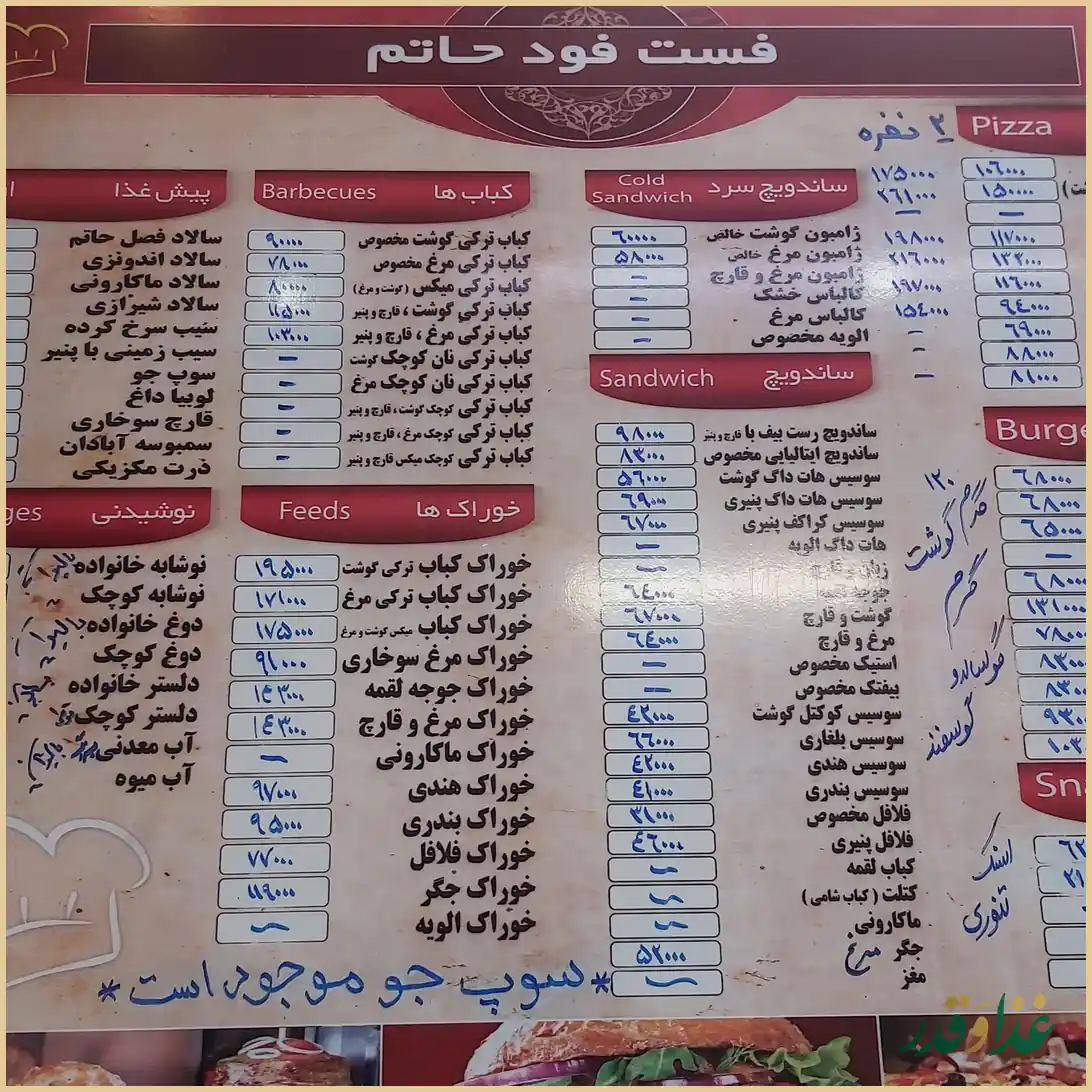 فست فود حاتم
Pizza
۲ نفره
۱۰۶۰۰۰ ۱۷۵۰۰۰
۱۵۰۰۰۰ ۲۶۱۰۰۰
–
۱۱۷۰۰۰ ۱۹۸۰۰۰
۱۳۳۰۰۰ ۲۱۶۰۰۰
۱۱۶۰۰۰ ۱۹۷۰۰۰
۹۴۰۰۰ ۱۵۴۰۰۰
۶۹۰۰۰ –
۸۸۰۰۰ –
۸۱۰۰۰ –
۱۲۰
گرم گوشت
گرم
گوساله و
گوسفند
۶۸۰۰۰
۶۸۰۰۰
۶۵۰۰۰
–
۶۸۰۰۰
۱۳۱۰۰۰
۷۸۰۰۰
تنوری
ساندویچ سرد Cold Sandwich
ژامبون گوشت خالص ۶۰۰۰۰
ژامبون مرغ خالص ۵۸۰۰۰
ژامبون مرغ و قارچ –
کالباس خشک –
کالباس مرغ –
الویه مخصوص –
ساندویچ Sandwich
ساندویچ رست بیف با قارچ و پنیر ۹۸۰۰۰
ساندویچ ایتالیایی مخصوص ۸۳۰۰۰
سوسیس هات داگ گوشت ۵۶۰۰۰
سوسیس هات داگ پنیری ۶۹۰۰۰
سوسیس کراکف پنیری ۶۷۰۰۰
هات داگ الویه –
زبان و قارچ –
۶۴۰۰۰
گوشت و قارچ ۶۷۰۰۰
مرغ و قارچ ۶۴۰۰۰
استیک مخصوص –
بیفتک مخصوص –
سوسیس کوکتل گوشت ۴۲۰۰۰
سوسیس بلغاری ۶۶۰۰۰
سوسیس هندی ۴۲۰۰۰
سوسیس بندری ۴۱۰۰۰
فلافل مخصوص ۳۱۰۰۰
فلافل پنیری ۴۶۰۰۰
کباب لقمه –
کتلت ( کباب شامی ) –
ماکارونی –
جگر مرغ ۵۲۰۰۰
مغز –
کباب ها Barbecues
کباب ترکی گوشت مخصوص ۹۰۰۰۰
کباب ترکی مرغ مخصوص ۷۸۰۰۰
کباب ترکی میکس ( گوشت و مرغ ) ۸۰۰۰۰
کباب ترکی گوشت ، قارچ و پنیر ۱۱۵۰۰۰
کباب ترکی مرغ ، قارچ و پنیر ۱۰۳۰۰۰
کباب ترکی نان کوچک گوشت –
کباب ترکی نان کوچک مرغ –
کباب ترکی کوچک گوشت ، قارچ و پنیر –
کباب ترکی کوچک مرغ ، قارچ و پنیر –
کباب ترکی کوچک میکس قارچ و پنیر –
خوراک ها Feeds
خوراک کباب ترکی گوشت ۱۹۵۰۰۰
خوراک کباب ترکی مرغ ۱۷۱۰۰۰
خوراک کباب میکس گوشت و مرغ ۱۷۵۰۰۰
خوراک مرغ سوخاری ۹۱۰۰۰
خوراک جوجه لقمه ۱۴۳۰۰۰
خوراک مرغ و قارچ ۱۴۳۰۰۰
خوراک ماکارونی –
خوراک هندی ۹۷۰۰۰
خوراک بندری ۹۵۰۰۰
خوراک فلافل ۷۷۰۰۰
خوراک جگر ۱۱۹۰۰۰
خوراک الویه –
پیش غذا
سالاد فصل حاتم
سالاد اندونزی
سالاد ماکارونی
سالاد شیرازی
سیب سرخ کرده
سیب زمینی با پنیر
سوپ جو
لوبیا داغ
قارچ سوخاری
سمبوسه آبادان
ذرت مکزیکی
نوشیدنی
نوشابه خانواده
نوشابه کوچک
دوغ خانواده
دوغ کوچک
دلستر خانواده
دلستر کوچک
آب معدنی
آب میوه
* سوپ جو موجود است *
غذا و قدر